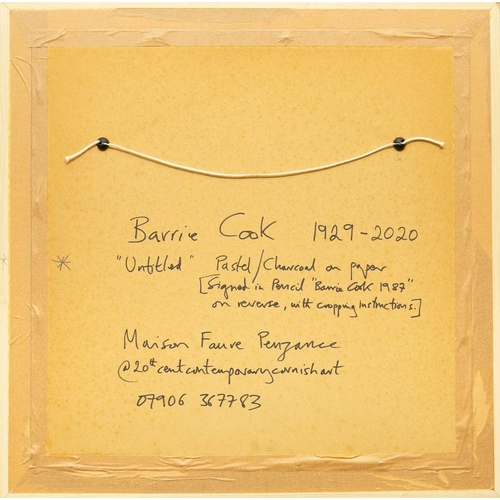 Barrie Cook 1929-2020
"Untitled" Pastel/Charcoal on paper
[Signed in Pencil "Barrie Cook 1987"
on reverse, with cropping instructions.]
Maison Faure Penzance
@20thcentcontemporarycornishart
07906 367783